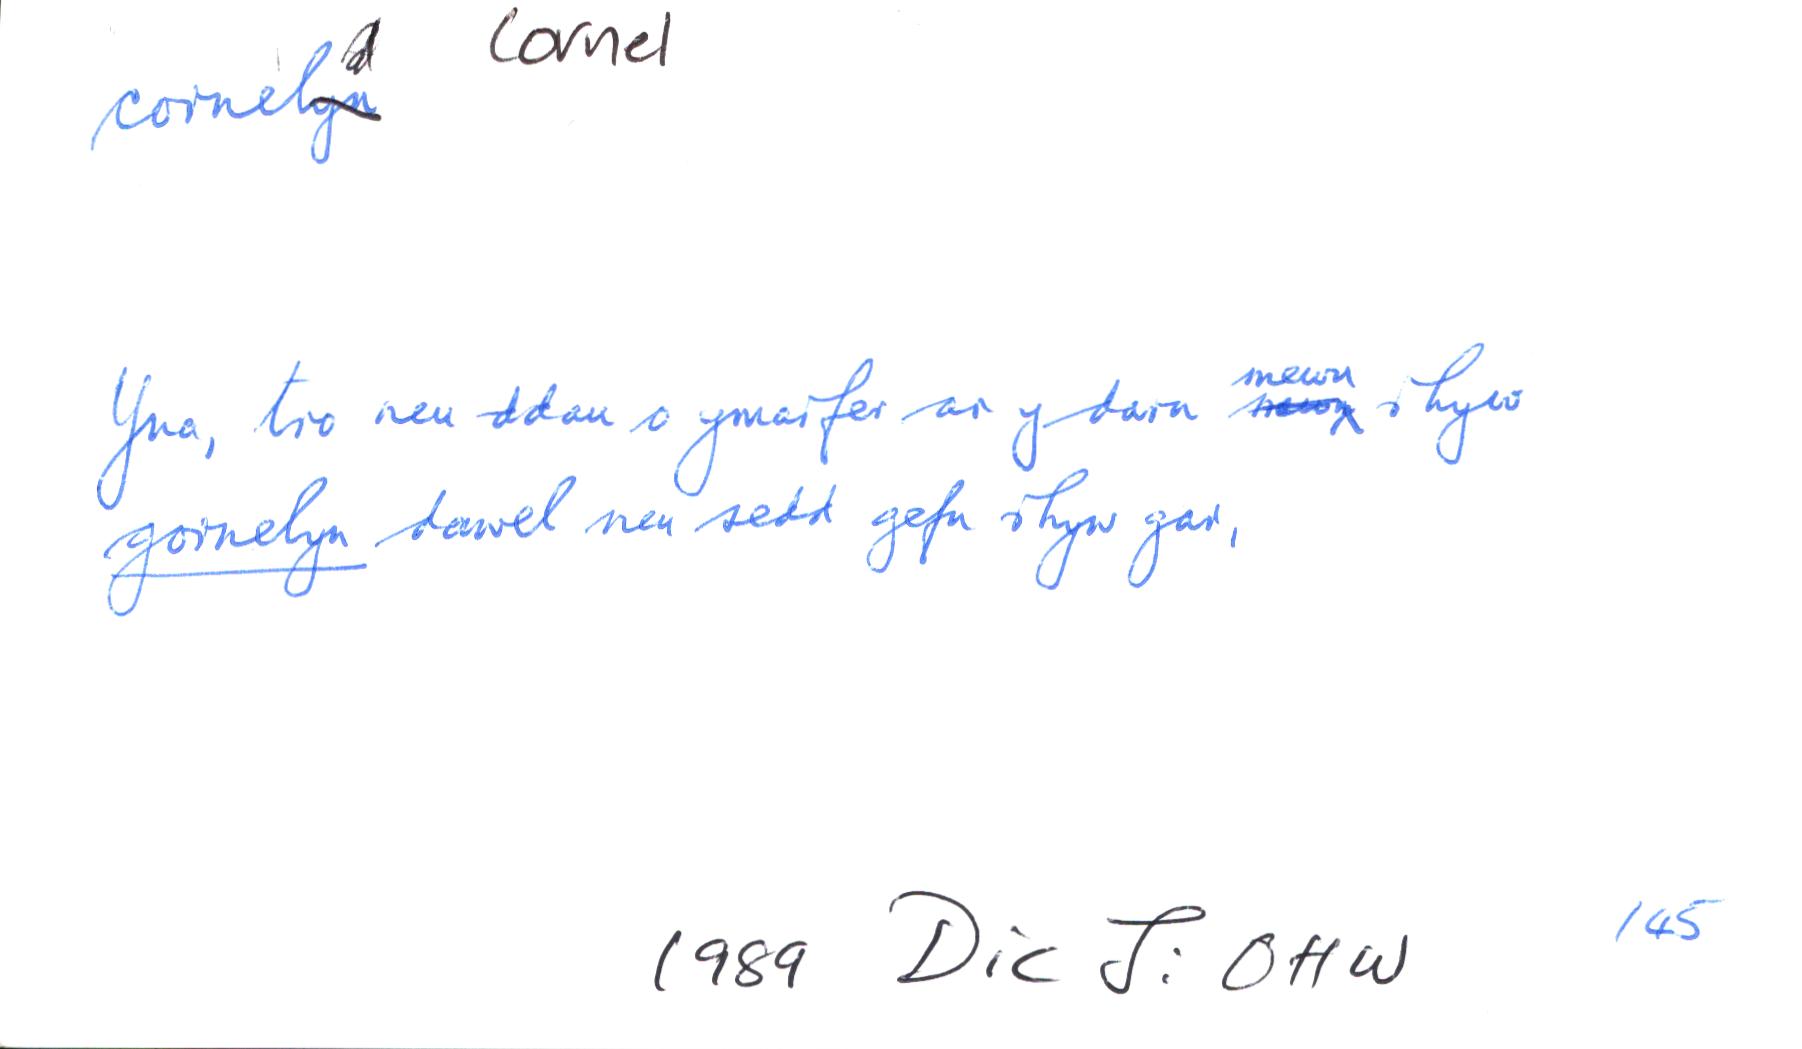 cornelyn Cornel
Yna, tro neu ddau o ymarfer ar y darn mewn rhyw
gornelyn dawel neu sedd gefn rhyw gar,
1989 Dic J: OHW 145